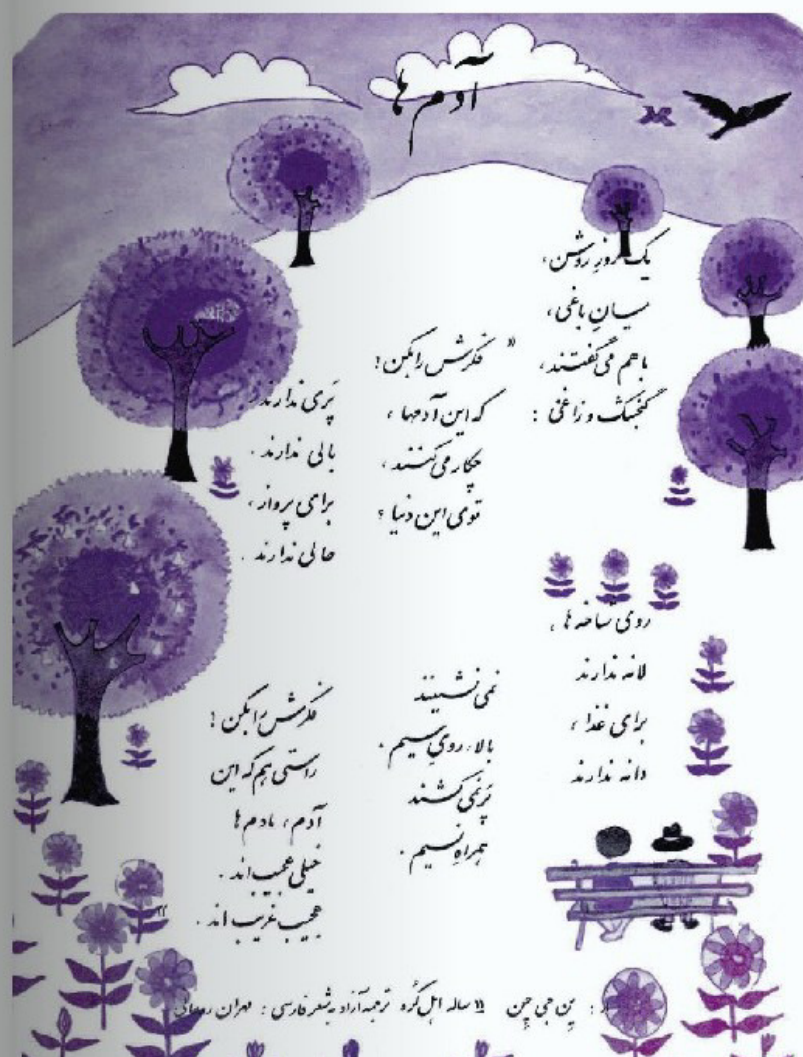 آدم ها
یک روزِ روشن،
میانِ باغی،
باهم می‌گفتند،
گنجشک و زاغی :
« فکرش را بکن !
که این آدمها ،
چکار می‌کنند ،
توی این دنیا ؟
پَری ندارند
بالی ندارند .
برای پرواز ،
حالی ندارند .
روی شاخه ها ،
لانه ندارند
برای غذا ،
دانه ندارند
نمی نشینند
بالا، رویِ سیم .
پَر نمی کشند
همراهِ نسیم .
فکرش را بکن !
راستی هم که این
آدم ، مادم ها
خیلی عجیب اند .
عجیب غریب اند .
: پن جی چن ۱۱ ساله اهل کُره ترجمه آزاد به شعر فارسی : مهران